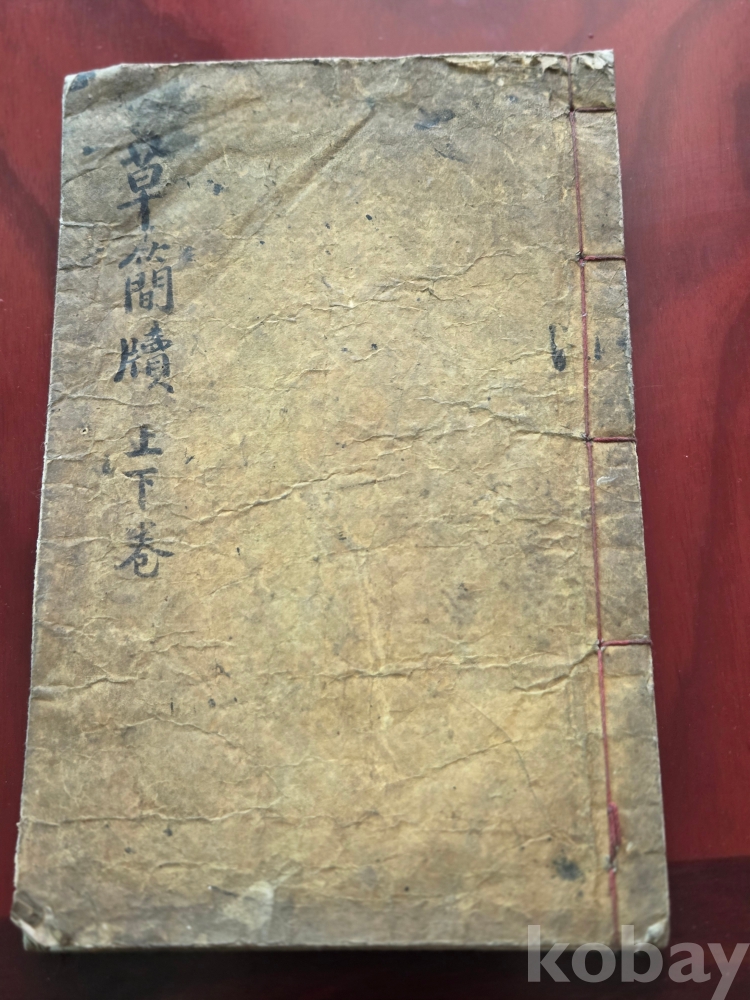 草簡牘 上下卷
kobay